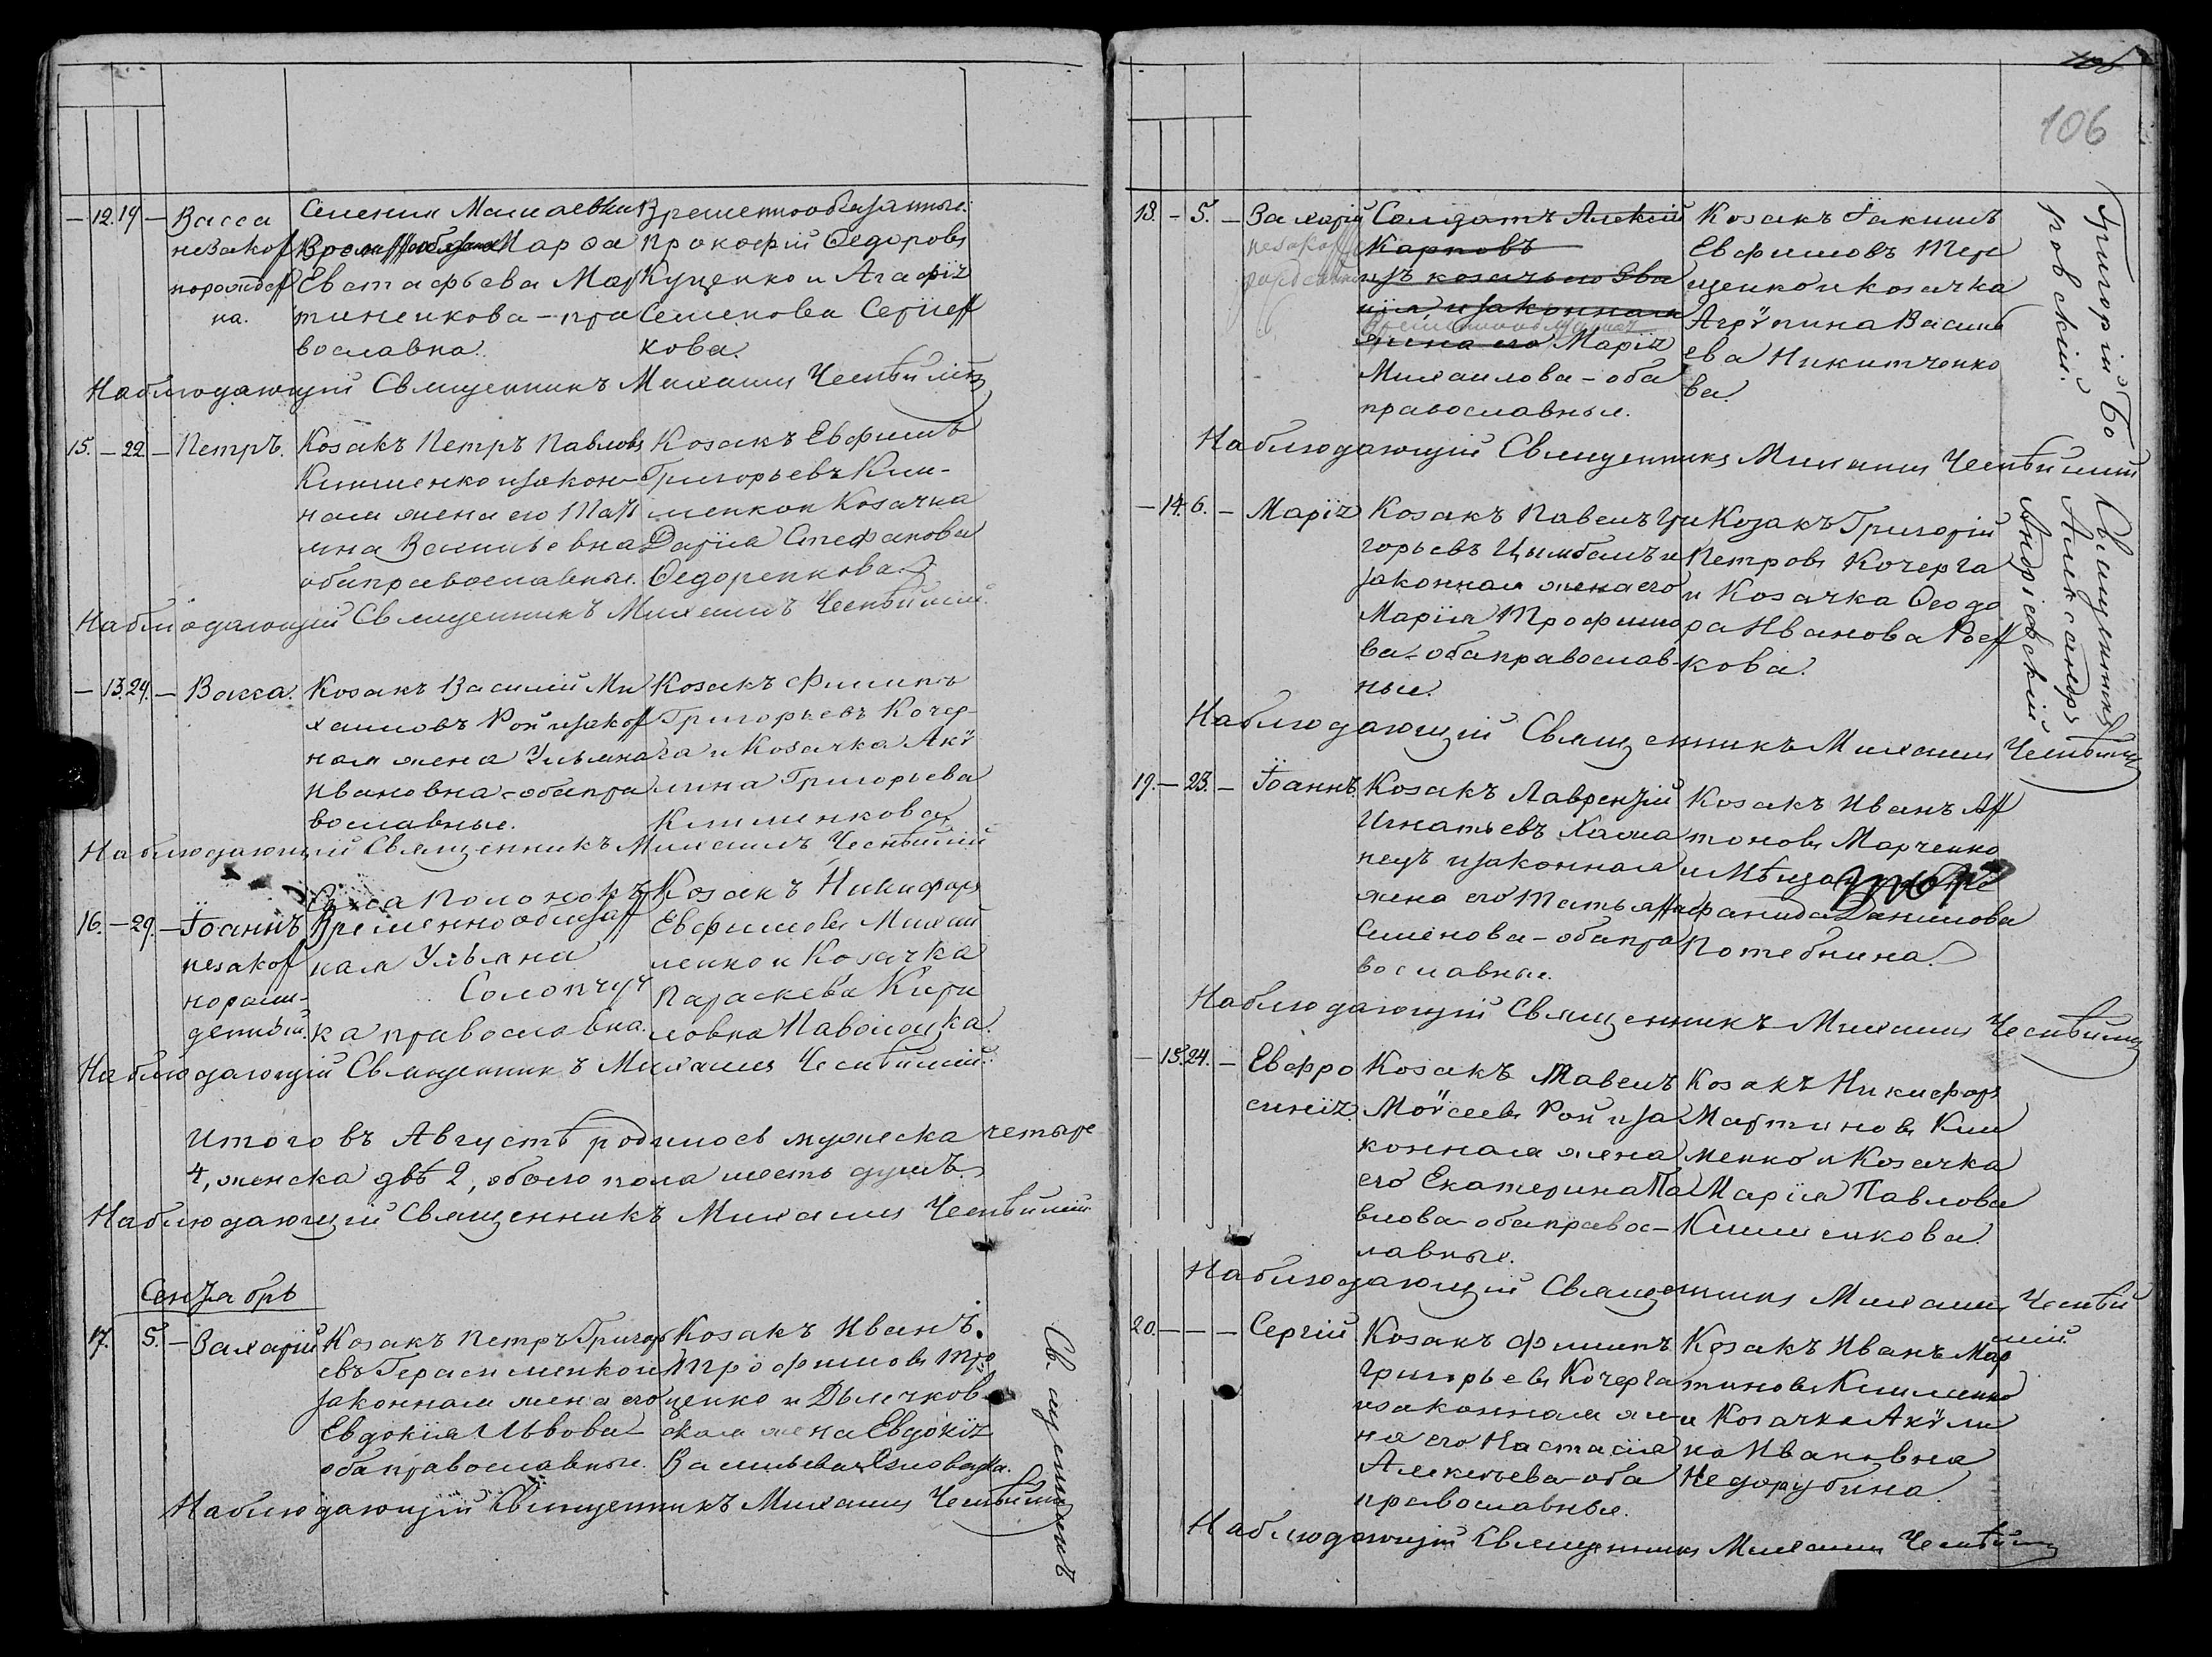 — 12. 19 — Васса
незакон
норожден
на.
Семении Машаевки
Временнообязанная Марѳа
Евстафьева Мар
тиненкова — пра
вославна.
Временнообязанные.
Прокофій Ѳедоровъ
Куценко и Агафія
Семенова Сергіен
кова.
Наблюдающій Священникъ Михаилъ
15. — 22 — Петръ.
Козакъ Петръ Павловъ
Клименко и закон-
ная жена его Тать
яна Васильевна
оба православные.
Козакъ Евфимъ
Григорьевъ Кли-
менко и Козачка
Дарія Стефанова
Ѳедоренкова
Наблюдающій Священникъ Михаилъ
— 13. 24. — Васса.
Козакъ Василій Ми
хаиловъ Рой и закон
ная жена Ульяна
Ивановна — оба пра
вославные.
Козакъ Филипъ
Григорьевъ Кочер-
га и Козачка Аку
лина Григорьева
Клименкова
Наблюдающій Священникъ Михаилъ
16. — 29. — Іоаннъ
незакон
норож-
денный.
Села
Временно обязан
ная Ульяна
Солопчу
ка православна.
Козакъ Никифоръ
Евфимовъ Михай
ленко и Козачка
Параскева Кири
ловна Наволоцка.
Наблюдающій Священникъ Михаилъ
Итого въ Августѣ родилось мужеска четыре
4, женска двѣ 2, обоего пола шесть душъ.
Наблюдающій Священникъ Михаилъ
Сентябрь
17. 5. — Захарій
Козакъ Петръ Григорь
евъ Герасименко и
законная жена его
Евдокія Львова —
оба православные.
Козакъ Иванъ
Трофимовъ Тро
ценко и Дьячков-
ская жена Евдокія
Васильева
Наблюдающій Священникъ Михаилъ
Священникъ
106
18. — 5. — Захарій
незакон
норожденный
Солдатъ Алексій
Карповъ
изъ козачьяго зва
нія и законная
жена его Марія
Михаилова — оба
православные.
Козакъ Іакимъ
Евфимовъ Тере
щенко и Козачка
Агрупина Василь
ева Никитченко
ва.
Наблюдающій Священникъ Михаилъ
— 14. 6. — Марія
Козакъ Павелъ Гри
горьевъ Цымбалъ и
законная жена его
Марія Трофимо
ва — оба православ-
ные.
Козакъ Григорій
Петровъ Кочерга
и Козачка Ѳеодо
ра Иванова Роен
кова.
Наблюдающій Священникъ Михаилъ
19. — 23. — Іоаннъ.
Козакъ Лаврентій
Игнатьевъ Хама
нецъ и законная
жена его Татьяна
Семенова — оба пра
вославные.
Козакъ Иванъ Ан
тоновъ Марченко
и
фанида Данилова
Потебнина.
Наблюдающій Священникъ Михаилъ
— 15. 24. — Евфро
синія.
Козакъ Павелъ
Моѵсеевъ Рой и за
конная жена
его Екатерина Па
влова — оба правос-
лавные.
Козакъ Никифоръ
Мартиновъ Кли
менко и Козачка
Марія Павлова
Клименкова.
Наблюдающій Священникъ Михаилъ
20. — — — Сергій
Козакъ Филипъ
Григорьевъ Кочерга
и законная же
на его Настасія
Алексѣева — оба
православные.
Козакъ Иванъ Мар
тиновъ Клименко
и Козачка Акули
на Ивановна
Недорубина.
Наблюдающій Священникъ Михаилъ
Григорій Бо
ровскій.
Священникъ
Александръ
Андріевскій